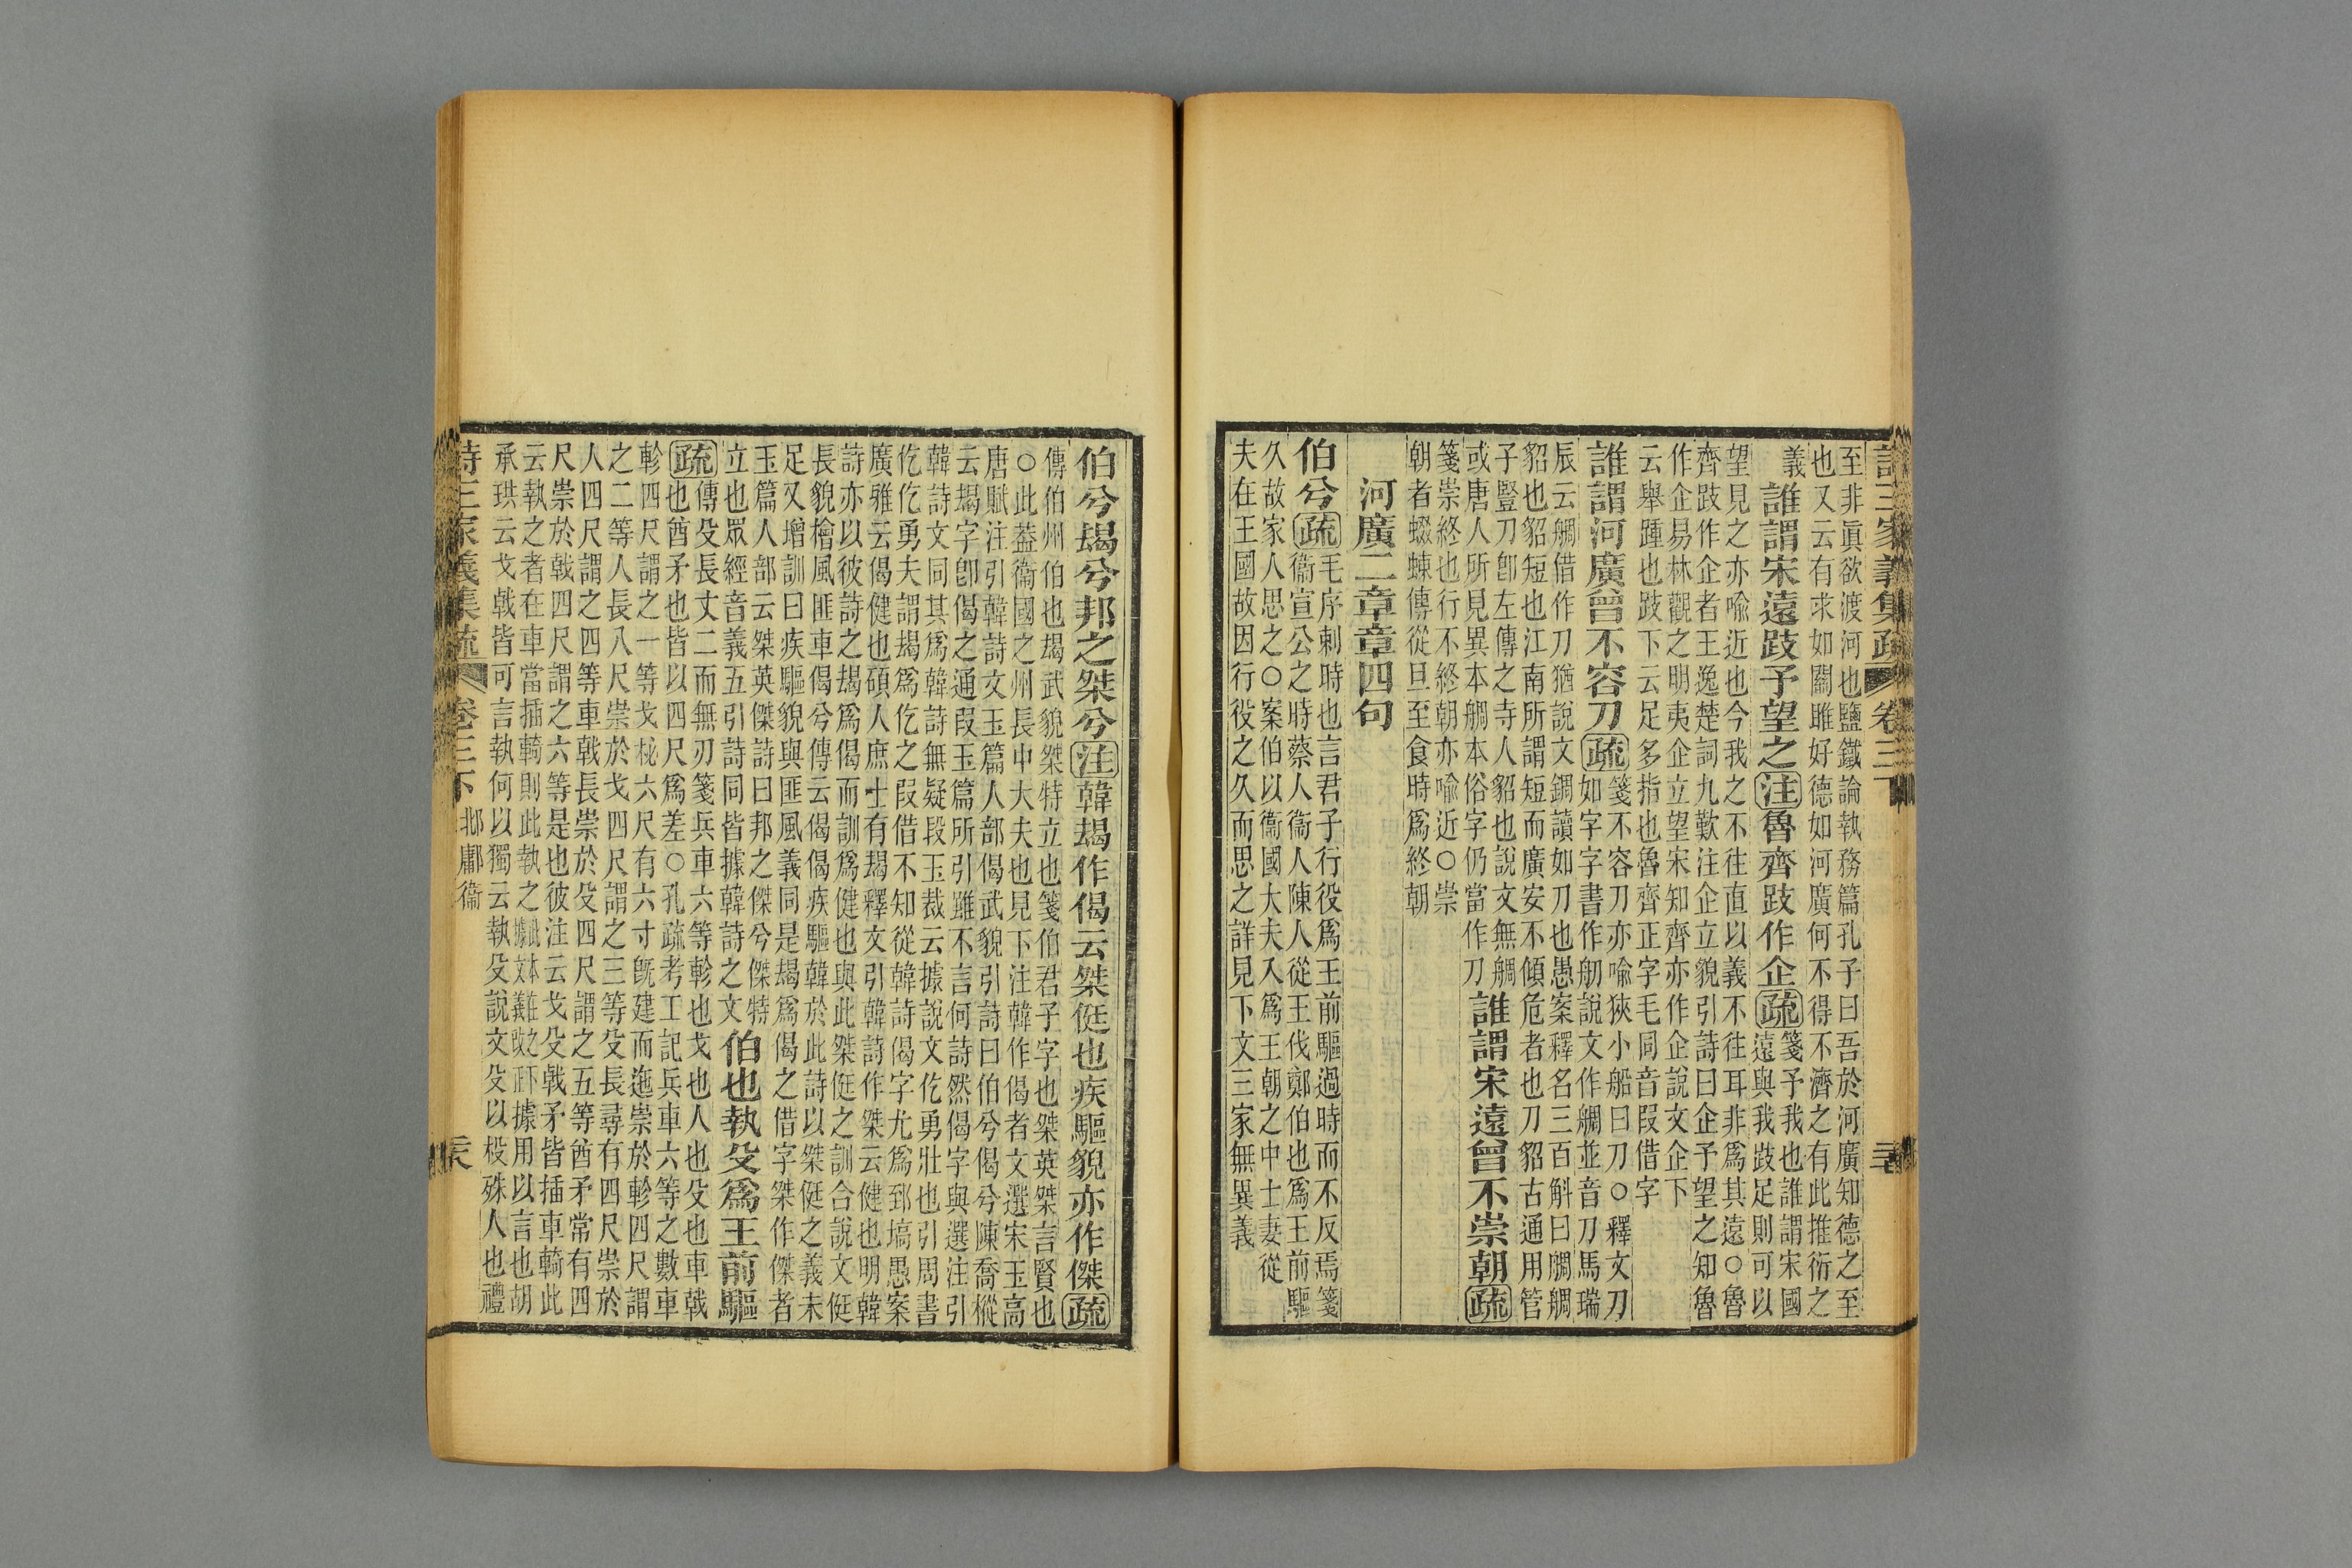 詩三家義集疏 卷三下
至非眞欲渡河也鹽鐵論執務篇孔子曰吾於河廣知德之至
也又云有求如關雎好德如河廣何不得不濟之有此推衍之
義
誰謂宋遠跂予望之注魯齊跂作企疏
箋予我也誰謂宋國
遠與我跂足則可以
望見之亦喻近也今我之不往直以義不往耳非爲其遠○魯
齊跂作企者王逸楚詞九歎注企立貌引詩曰企予望之知魯
作企易林觀之明夷企立望宋知齊亦作企說文企下
云舉踵也跂下云足多指也魯齊正字毛同音叚借字
誰謂河廣曾不容刀疏
箋不容刀亦喻狹小船曰刀○釋文刀
如字字書作舠說文作䑠並音刀馬瑞
辰云䑠借作刀猶說文錭讀如刀也愚案釋名三百斛曰䑠䑠
貂也貂短也江南所謂短而廣安不傾危者也刀貂古通用管
子豎刀卽左傳之寺人貂也說文無䑠
或唐人所見異本䑠本俗字仍當作刀
誰謂宋遠曾不崇朝疏
箋崇終也行不終朝亦喻近○崇
朝者蝃蝀傳從旦至食時爲終朝
河廣二章章四句
伯兮疏
毛序刺時也言君子行役爲王前驅過時而不反焉箋
衞宣公之時蔡人衞人陳人從王伐鄭伯也爲王前驅
久故家人思之○案伯以衞國大夫入爲王朝之中士妻從
夫在王國故因行役之久而思之詳見下文三家無異義
伯兮朅兮邦之桀兮注韓朅作偈云桀侹也疾驅貌亦作傑疏
傳伯州伯也朅武貌桀特立也箋伯君子字也桀英桀言賢也
○此葢衞國之州長中大夫也見下注韓作偈者文選宋玉高
唐賦注引韓詩文玉篇人部偈武貌引詩曰伯兮偈兮陳喬樅
云朅字卽偈之通叚玉篇所引雖不言何詩然偈字與選注引
韓詩文同其爲韓詩無疑段玉裁云據說文仡勇壯也引周書
仡仡勇夫謂朅爲仡之叚借不知從韓詩偈字尤爲郅塙愚案
廣雅云偈健也碩人庶士有朅釋文引韓詩作桀云健也明韓
詩亦以彼詩之朅爲偈而訓爲健也與此桀侹之訓合說文侹
長貌檜風匪車偈兮傳云偈偈疾驅韓於此詩以桀侹之義未
足又增訓曰疾驅貌與匪風義同是朅爲偈之借字桀作傑者
玉篇人部云桀英傑詩曰邦之傑兮傑特
立也眾經音義五引詩同皆據韓詩之文
伯也執殳爲王前驅
疏
傳殳長丈二而無刃箋兵車六等軫也戈也人也殳也車戟
也酋矛也皆以四尺爲差○孔疏考工記兵車六等之數車
軫四尺謂之一等戈柲六尺有六寸旣建而迤崇於軫四尺謂
之二等人長八尺崇於戈四尺謂之三等殳長尋有四尺崇於
人四尺謂之四等車戟長崇於殳四尺謂之五等酋矛常有四
尺崇於戟四尺謂之六等是也彼注云戈殳戟矛皆插車輢此
云執之者在車當插輢則此執之據用以言也胡
承珙云戈戟皆可言執何以獨云執殳說文殳以杸殊人也禮
詩三家義集疏 卷三下 邶鄘衞